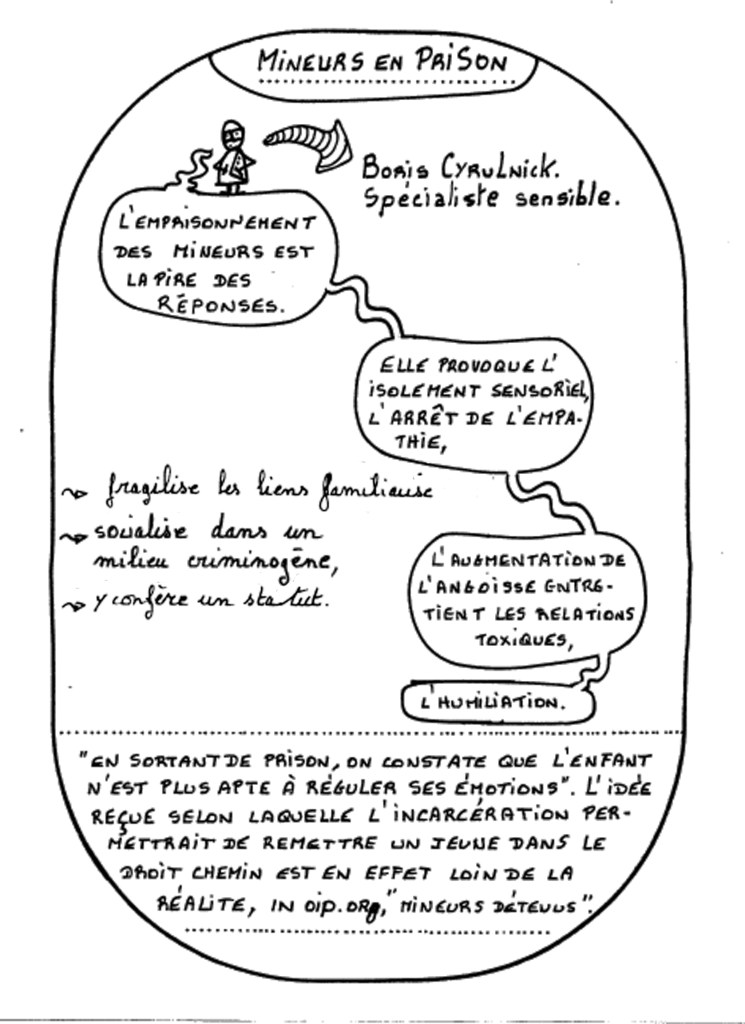 MINEURS EN PRISON
BORIS CYRULNICK.
Spécialiste sensible.
L'EMPRISONNEMENT
DES MINEURS EST
LA PIRE DES
RÉPONSES.
ELLE PROVOQUE L'
ISOLEMENT SENSORIEL,
L'ARRÊT DE L'EMPA-
THIE,
fragilise les liens familiause
socialise dans un
milieu criminogène,
y confère un statut.
L'AUGMENTATION DE
L'ANGOISSE ENTRE-
TIENT LES RELATIONS
TOXIQUES,
L'HUMILIATION.
"EN SORTANT DE PRISON, ON CONSTATE QUE L'ENFANT
N'EST PLUS APTE À RÉGULER SES ÉMOTIONS". L'IDÉE
REÇUE SELON LAQUELLE L'INCARCÉRATION PER-
METTRAIT DE REMETTRE UN JEUNE DANS LE
DROIT CHEMIN EST EN EFFET LOIN DE LA
RÉALITE, IN OIP.ORG, "MINEURS DÉTENUS".